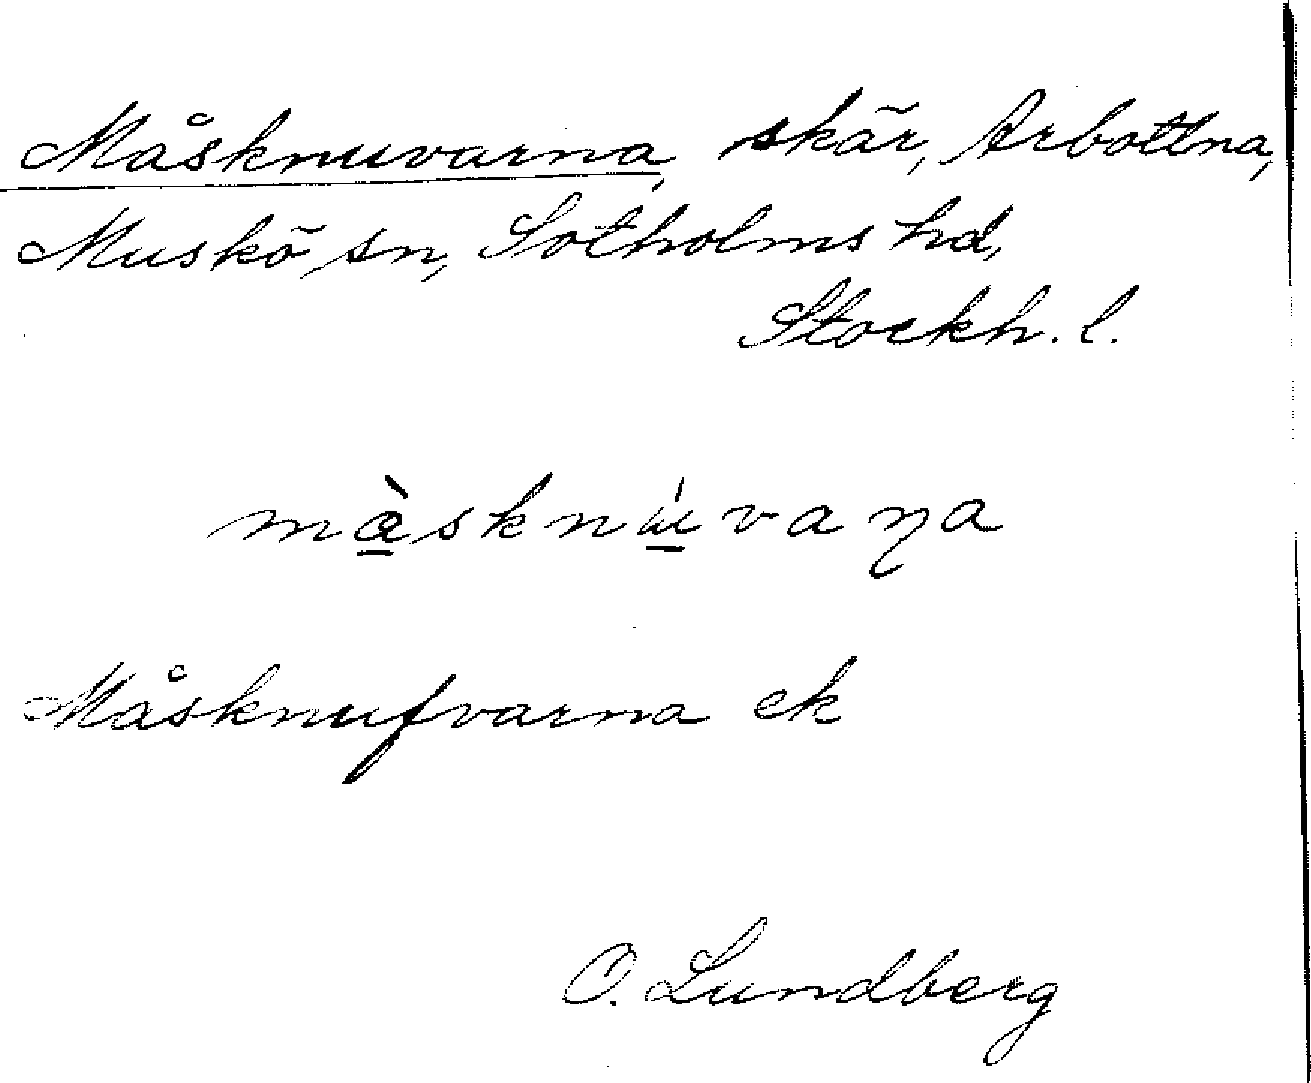 Måsknuvarna, skär, Arbottna,
Muskö sn, Sotholms hd,
Stockh. l.
Måsknufvarna ek
O. Lundberg